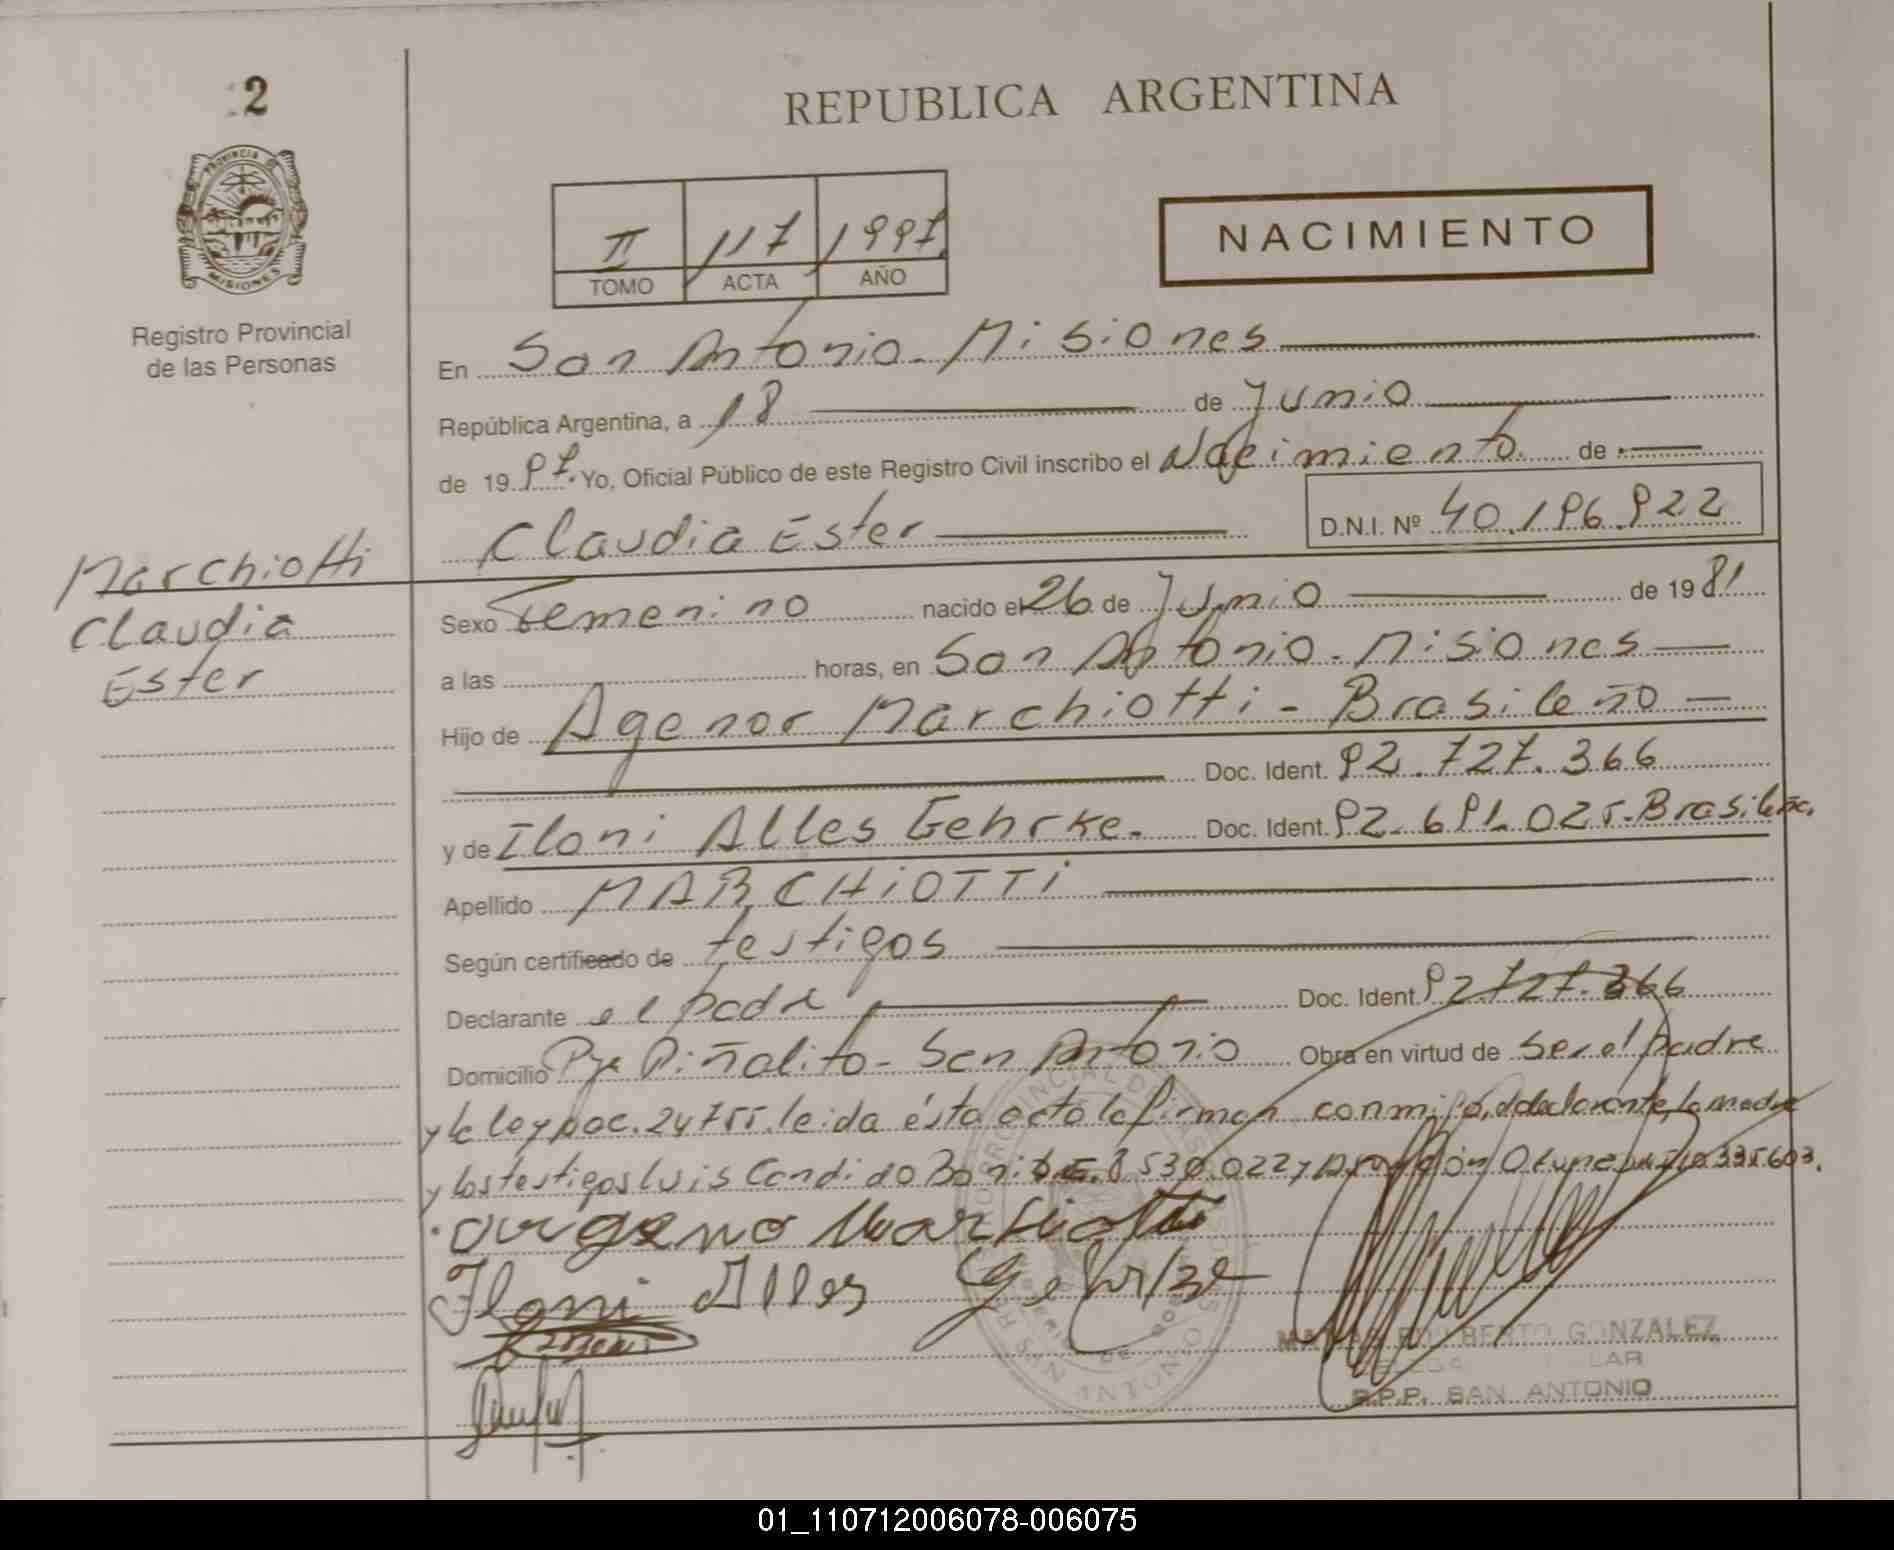 2
REPUBLICA ARGENTINA
PROVINCIA DE
MISIONES
Registro Provincial
de las Personas
II 117 1997
TOMO ACTA AÑO
NACIMIENTO
En San Antonio - Misiones
República Argentina, a 18 de Junio
de 19 97. Yo, Oficial Público de este Registro Civil inscribo el Nacimiento de
Claudia Ester D.N.I. Nº 40.196.922
Marchiotti
Claudia
Ester
Sexo Femenino nacido el 26 de Junio de 19 81
a las horas, en San Antonio - Misiones
Hijo de Agenor Marchiotti - Brasileño
Doc. Ident. 92.727.366
y de Iloni Alles Gehrke. Doc. Ident. 92.691.025 - Brasileña.
Apellido MARCHIOTTI
Según certificado de testigos
Declarante el padre Doc. Ident. 92.727.366
Domicilio Pje Piñalito - San Antonio Obra en virtud de ser el padre
y la ley nac. 24755. leida ésta acta la firman conmigo, el declarante, la madre
y los testigos Luis Candido 8.530.022 y
Marchiotti
Iloni Alles Gehrke
GONZALEZ
R.P.P. SAN ANTONIO
01_110712006078-006075